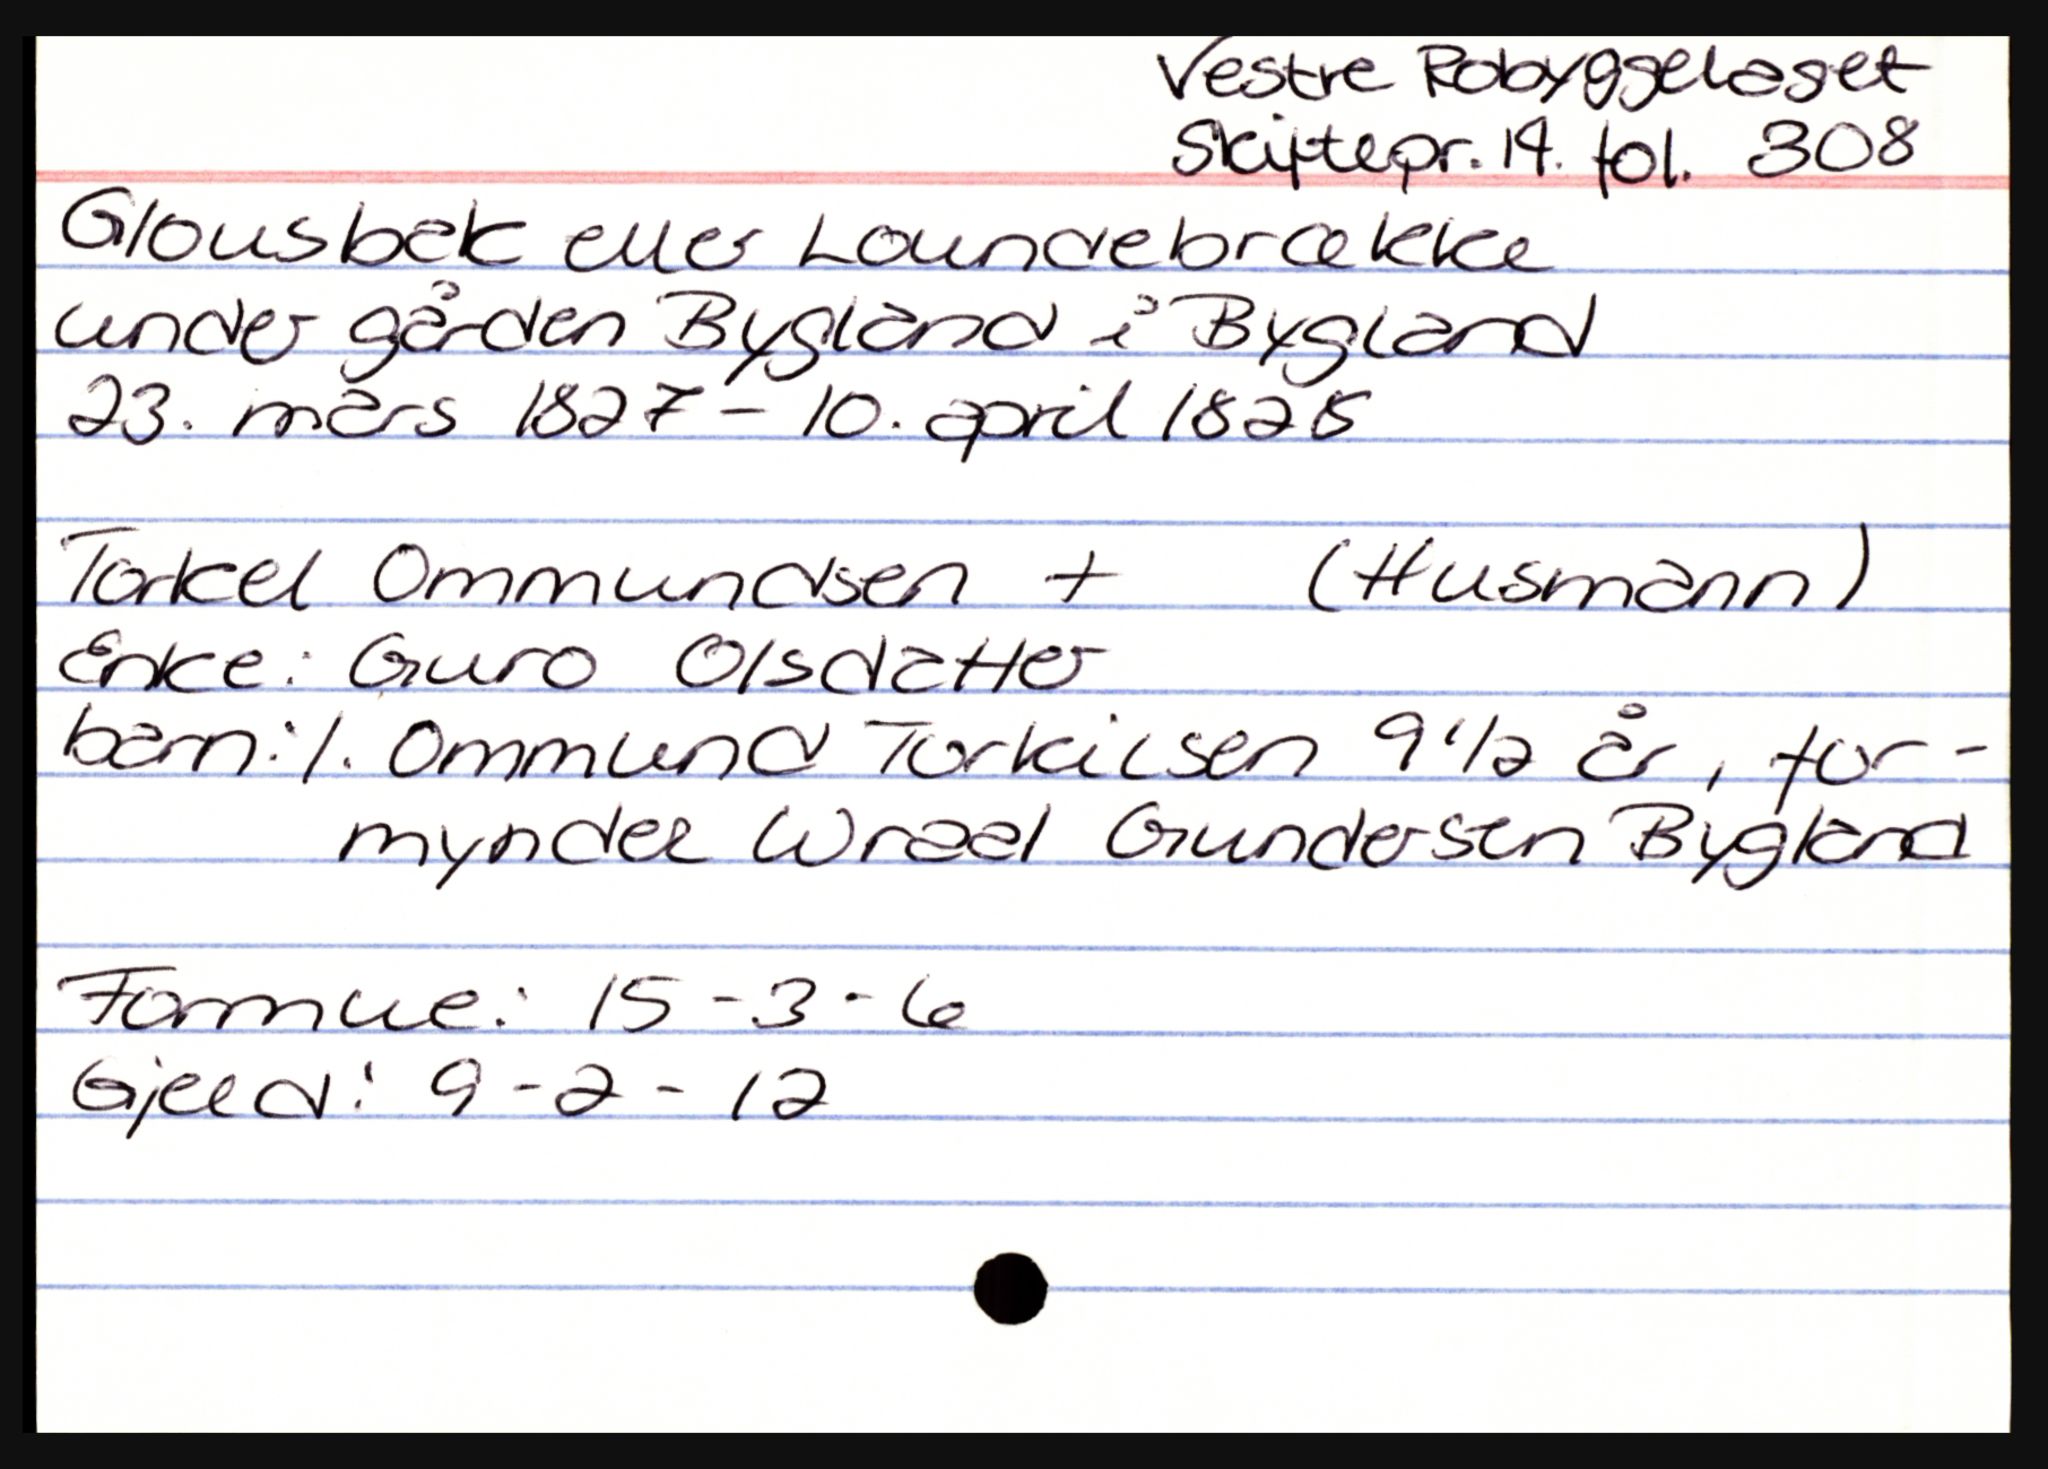 Vestre Robyggelaget
Skiftepr. 14. fol. 308
Glousbak eller Loundebrække
under gården Bygland i Bygland
23. mars 1827 - 10. april 1828
Torkel Ommundsen + (Husmann)
Enke: Guro Olsdatter
barn: 1. Ommund Torkilsen 9 1/2 år, for-
mynder Wraal Gundersen Bygland
Formue: 15 - 3 - 6
Gjeld: 9 - 2 - 12